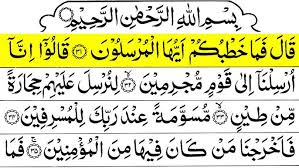 بِسْمِ اللّٰهِ الرَّحْمٰنِ الرَّحِيْمِ
قَالَ فَمَا خَطْبُكُمْ اَيُّهَا الْمُرْسَلُوْنَ ﴿۳۱﴾ قَالُوْۤا اِنَّاۤ
اُرْسِلْنَاۤ اِلٰى قَوْمٍ مُّجْرِمِيْنَ ﴿۳۲﴾ لِنُرْسِلَ عَلَيْهِمْ حِجَارَةً
مِّنْ طِيْنٍ ﴿۳۳﴾ مُّسَوَّمَةً عِنْدَ رَبِّكَ لِلْمُسْرِفِيْنَ ﴿۳۴﴾
فَاَخْرَجْنَا مَنْ كَانَ فِيْهَا مِنَ الْمُؤْمِنِيْنَ ﴿۳۵﴾ فَمَا